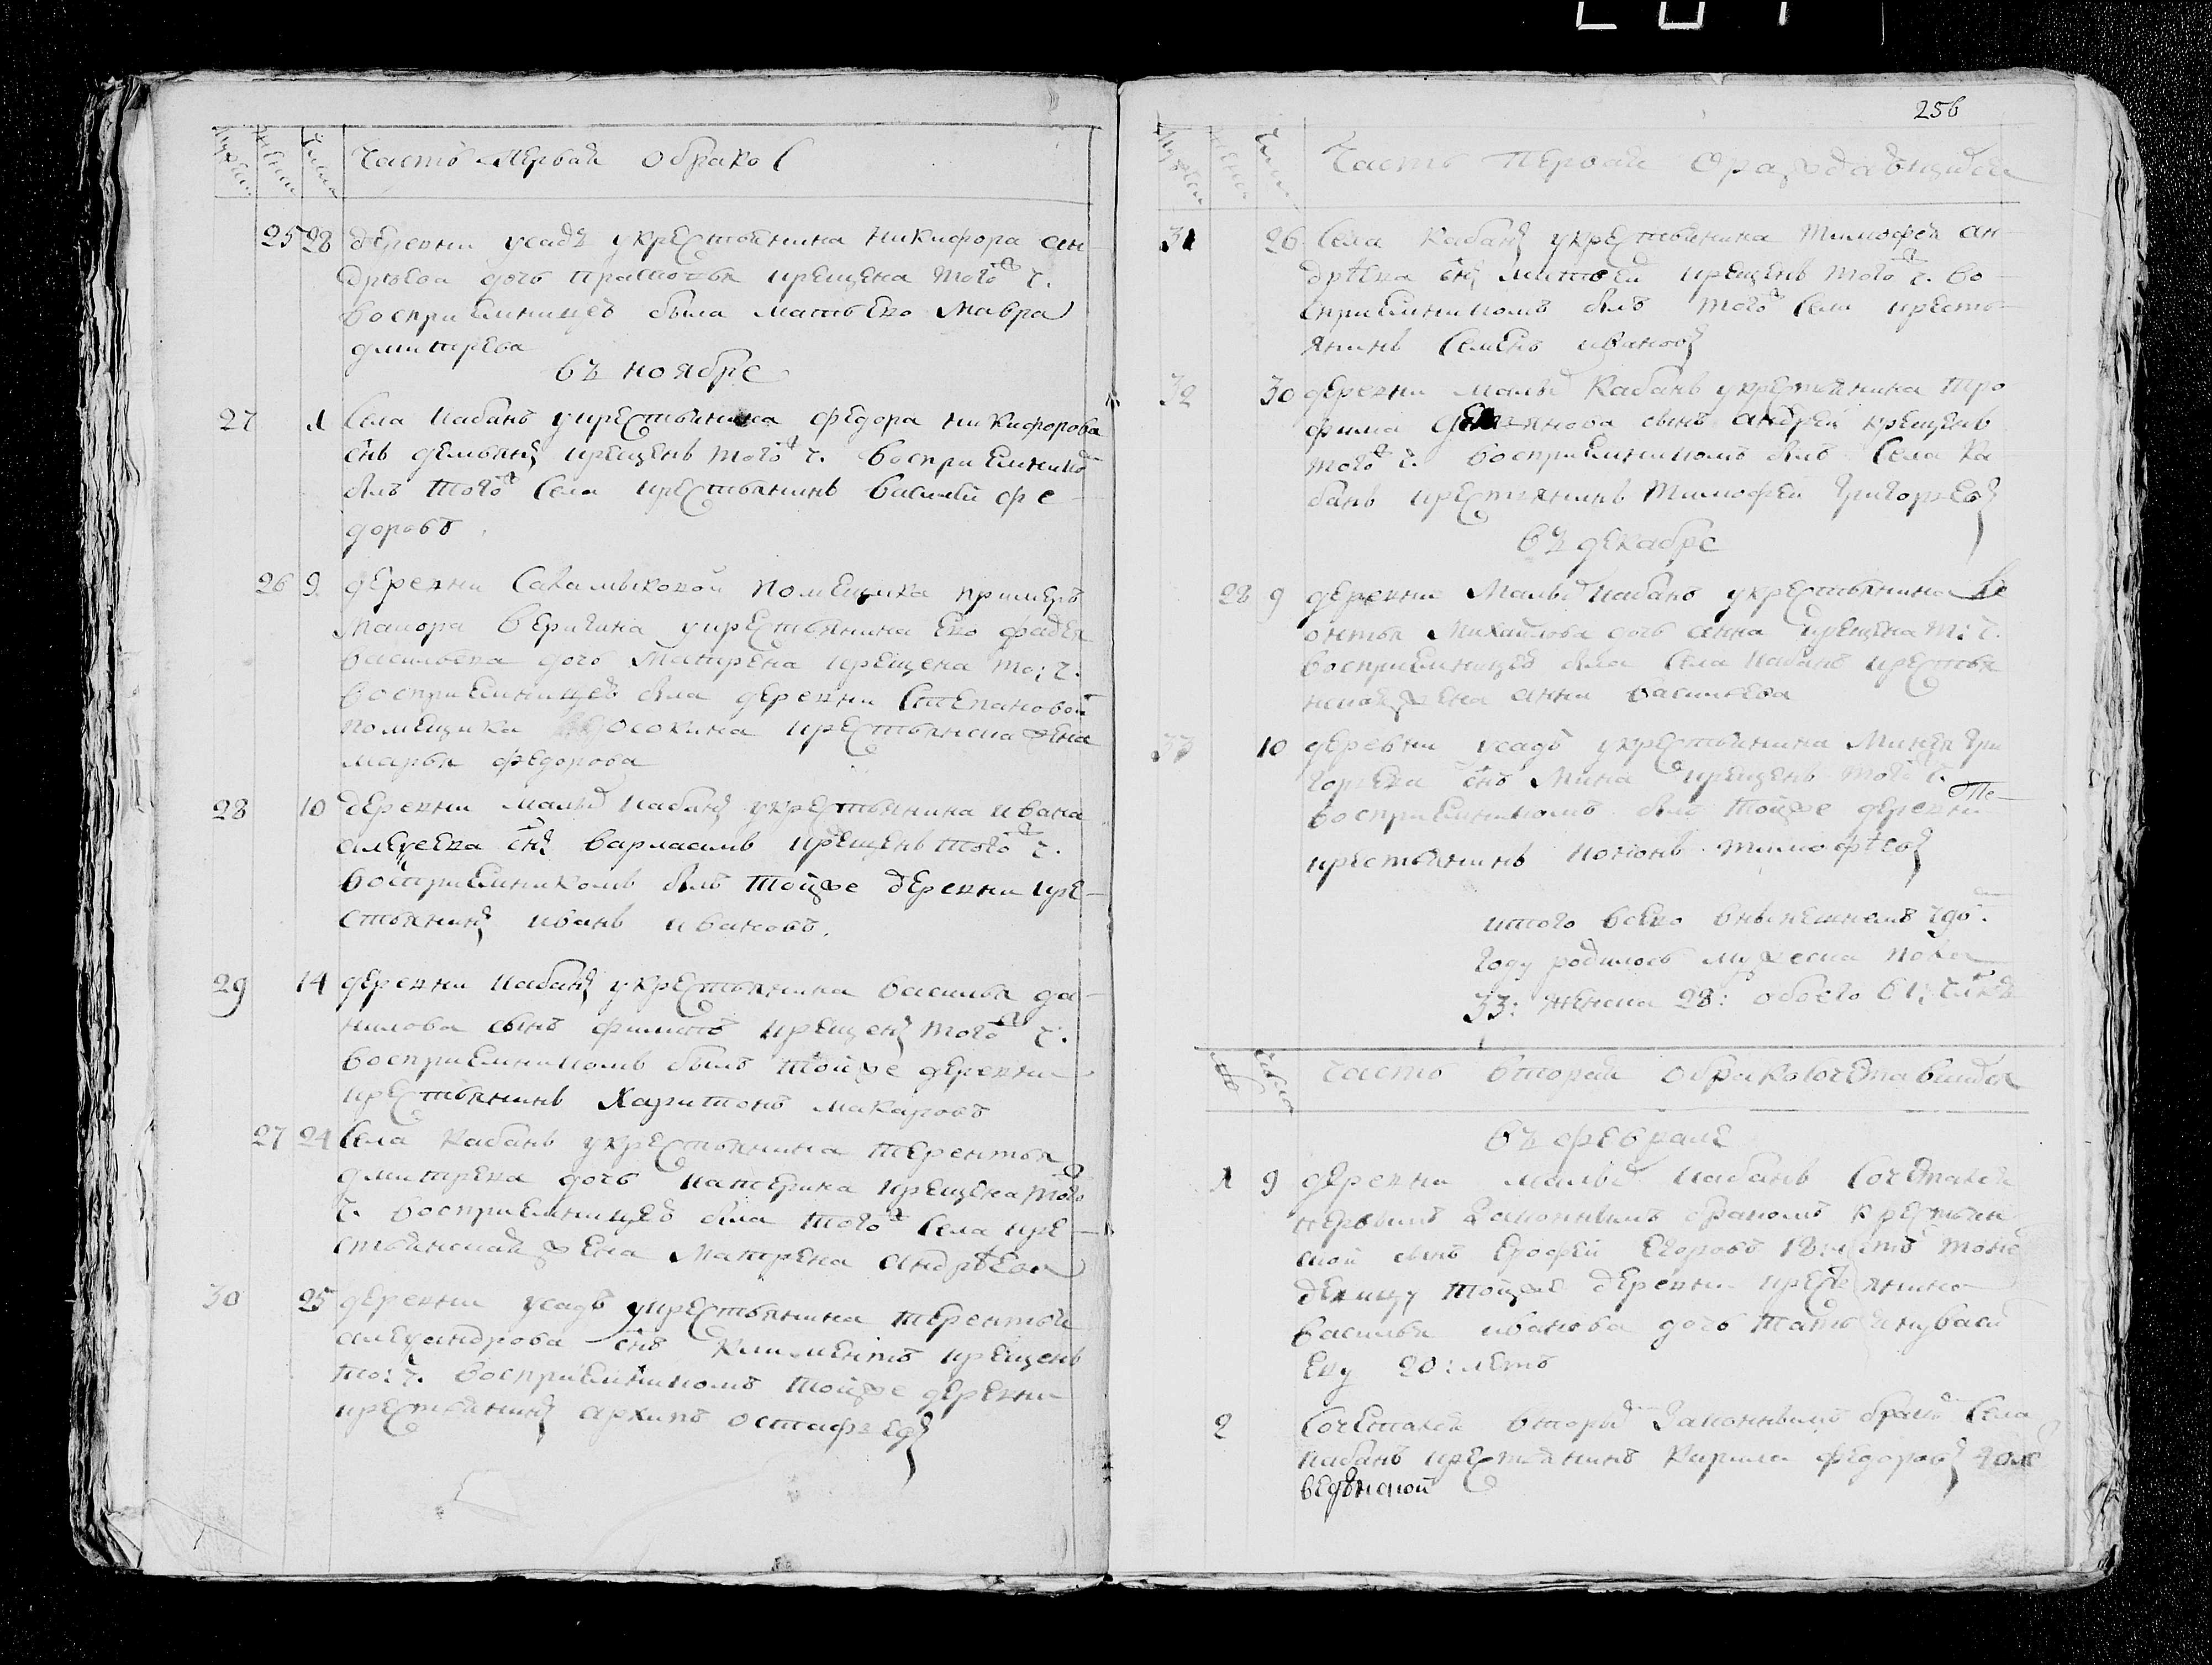 Часть первая о брако с
25 28 деревни усадъ у крестьянина Никифора Ан-
дрѣева дочь крещена того ж ч.
восприемницею была Матвѣева Мавра
Дмитрева
въ ноябре
27 1 села Кабанъ у крестьянина Федора Никифорова
снъ Демьянъ крещенъ того ж ч. восприемником
былъ того ж села крестьянинъ Василей Фе-
доровъ
26 9 деревни помещика
маиора Веригина у крестьянина ево Фадея
Васильева дочь Матрена крещена то: ч.
восприемницею была деревни Степановой
помещика Осокина крестьянска жена
Марья Федорова
28 10 деревни малых Кабанъ у крестьянина Ивана
Алексеева снъ Варлаамъ крещенъ того ж ч.
восприемникомъ былъ тойже деревни кре-
стьянинъ Иванъ Ивановъ.
29 14 деревни Кабанъ у крестьянина Василья Да-
нилова сынъ Филипъ крещенъ того ж ч.
восприемникомъ былъ тойже деревни
крестьянинъ Харитонъ Макаровъ
27 24 села Кабанъ у крестьянина Терентья
Дмитрева дочь Катерина крещена того ж
ч. восприемницею была того ж села кре-
стьянская жена Матрена Андрѣева
30 25 деревни усадъ у крестьянина Терентья
Александрова снъ Климентъ крещенъ
то: ч. восприемникомъ тойже деревни
крестьянинъ Архипъ Остафьев
256
Часть первая о раждающихся
31 26 села Кабанъ у крестьянина Тимофея Ан-
дрѣева снъ Матвей крещенъ того ж ч. во-
сприемникомъ былъ того ж села кресть-
янинъ Семенъ Ивановъ
32 30 деревни малыхъ Кабанъ у крестьянина Тро
фима сынъ Андрей крещенъ
того ж ч. восприемникомъ былъ села Ка
банъ крестьянинъ Тимофей Григорьевъ
въ декабре
28 9 деревни малыхъ Кабанъ у крестьянина Ле
онтья Михайлова дочь Анна крещена т: ч.
восприемницею была села Кабанъ крестья
нская жена Анна Васильева
33 10 деревни усадъ у крестьянина Минея Гри
горьева снъ Мина крещенъ того ж ч.
восприемникомъ былъ тойже деревни
крестьянинъ Тимофѣев
итого всего в нынешнемъ году
году родилось мужеска пола
33: женска 28: обоего 61: члвкъ
Часть вторая о бракосочетавшихся
въ феврале
1 9 деревни малых Кабанъ сочетался
первымъ законнымъ бракомъ крестьян
ской сынъ Ерофей Егоровъ 18: летъ
девицу тойже деревни крестьянина
Василья Иванова дочь Татьяну Васил
еву 20: летъ
2 сочетался вторым законнымъ браком села
Кабанъ крестьянинъ Кирила Федоровъ